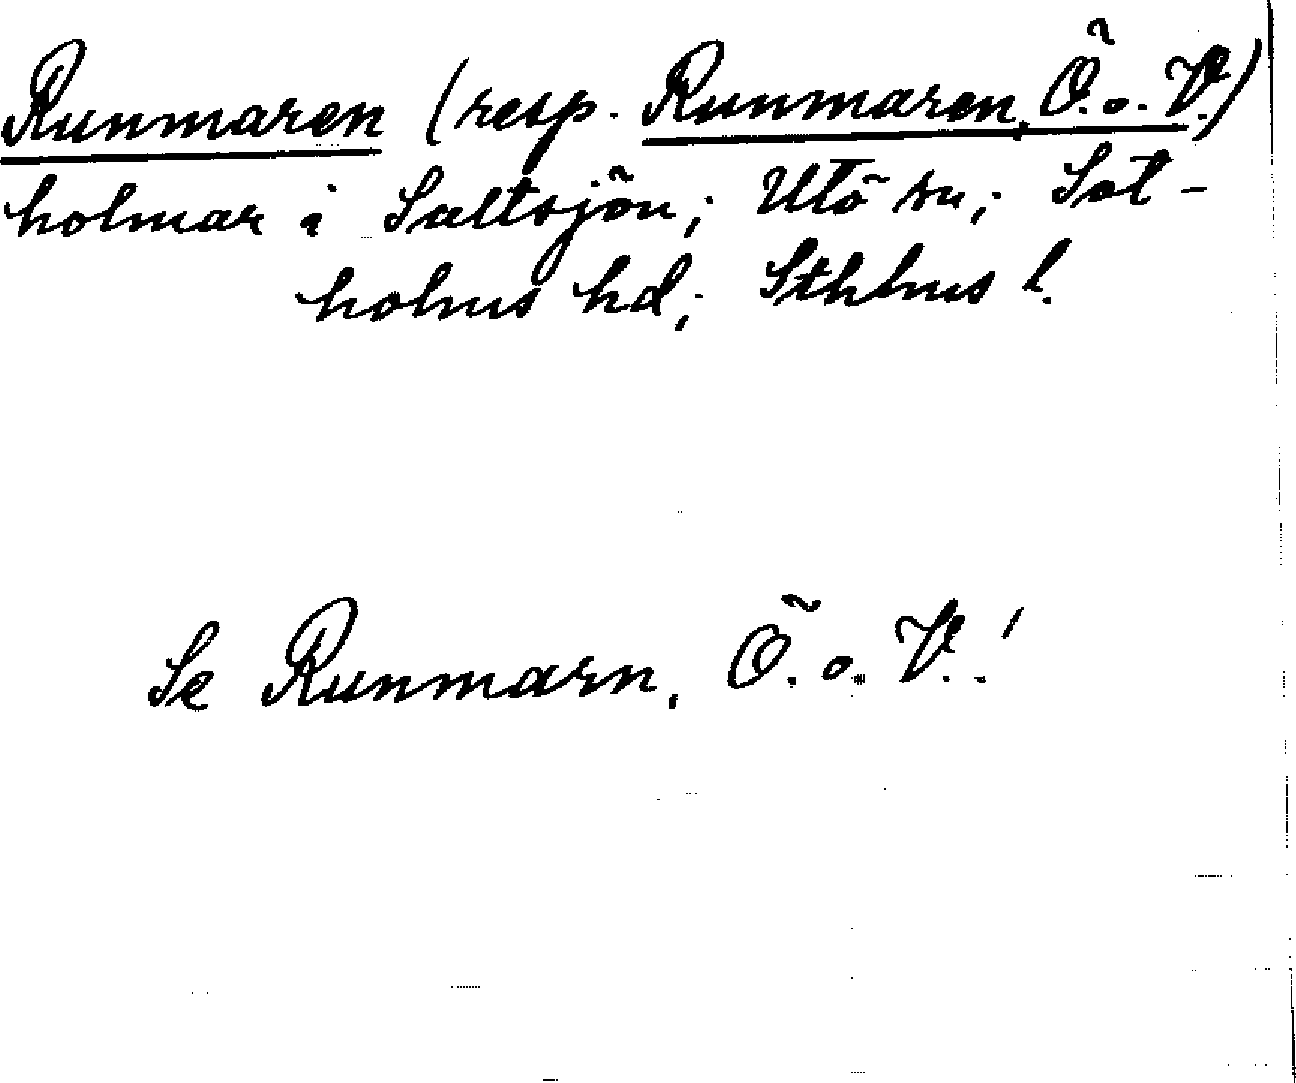 Runmaren (resp. Runmaren, Ö. o. V.)
holmar i Saltsjön; Utö sn; Sot-
holms hd; Sthlms l.
Se Runmarn, Ö. o. V.!